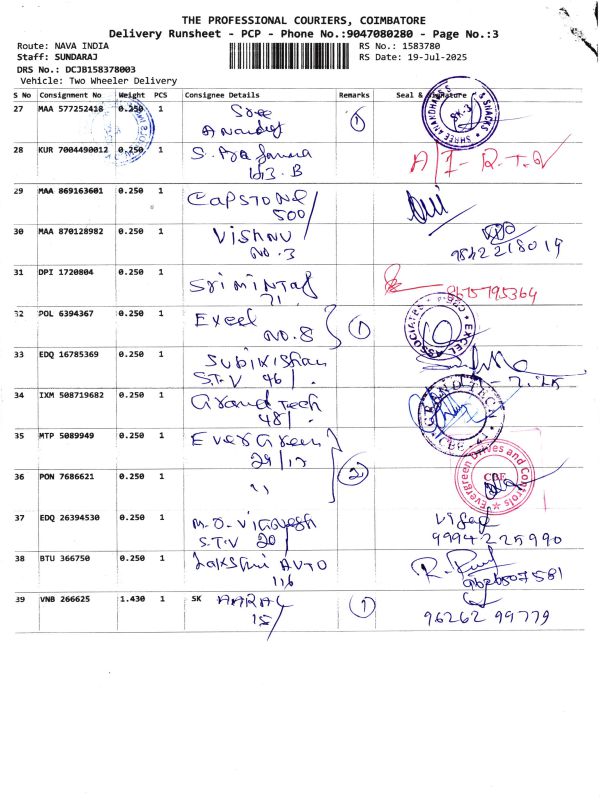 THE PROFESSIONAL COURIERS, COIMBATORE
Delivery Runsheet - PCP - Phone No.:9047080280 - Page No.:3
Route: NAVA INDIA
Staff: SUNDARAJ
DRS No.: DCJB158378003
Vehicle: Two Wheeler Delivery
RS No.: 1583780
RS Date: 19-Jul-2025
S No Consignment No Weight PCS Consignee Details Remarks Seal & Signature
27 MAA 577252418 0.250 1 Sree 1
28 KUR 7004490012 0.250 1
163. B
29 MAA 869163601 0.250 1 CAPSTONE
500/
30 MAA 870128982 0.250 1 Vishnu
NO. 3 9842218019
31 DPI 1720804 0.250 1 8675795364
32 POL 6394367 0.250 1 Excel 1 EXCEL ASSOCIATES
NO. 8
33 EDQ 16785369 0.250 1
S.T.V 46/.
34 IXM 508719682 0.250 1 Grand Tech GRAND TECH
48/.
35 MTP 5089949 0.250 1 Ever Green 2
29/13
36 PON 7686621 0.250 1 11 Evergreen Drives and Controls
37 EDQ 26394530 0.250 1 M.O. Vignesh
S.T.V 20/ 9994225990
38 BTU 366750 0.250 1 Lakshmi AUTO
116 9626507581
39 VNB 266625 1.430 1 SK AARAL 1
15/ 96262 99779